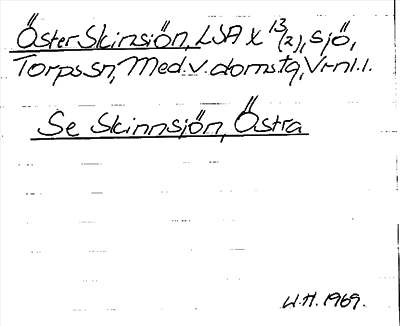 Öster Skinsiön, LSA X 13/(2), sjö,
Torps sn, Med.v.doms.tg, Vrnl.l.
Se Skinnsjön, Östra
W.H. 1969.